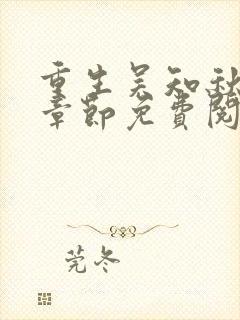 重生吴知秋
章节免费阅
莞冬